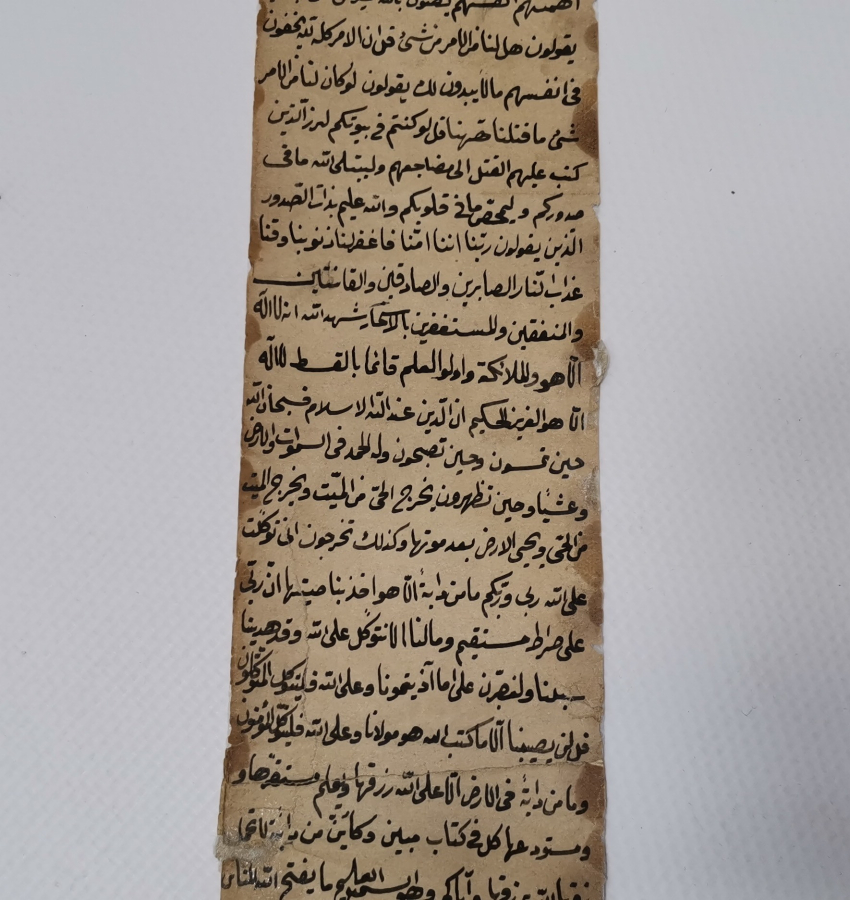 اهمتهم انفسهم يظنون بالله غير
يقولون هل لنا من الامر من شئ قل ان الامر كله لله يخفون
فى انفسهم مالا يبدون لك يقولون لوكان لنا من الامر
شئ ما قتلنا ههنا قل لو كنتم فى بيوتكم لبرز الذين
كتب عليهم القتل الى مضاجعهم وليبتلى الله ما فى
صدوركم وليمحص ما فى قلوبكم والله عليم بذات الصدور
الذين يقولون ربنا اننا امنا فاغفر لنا ذنوبنا وقنا
عذاب النار الصابرين والصادقين والقانتين
والمنفقين والمستغفرين بالاسحار شهد الله انه لا اله
الا هو والملائكة واولوا العلم قائما بالقسط لا اله
الا هو العزيز الحكيم ان الدين عند الله الاسلام فسبحان الله
حين تمسون وحين تصبحون وله الحمد فى السموات والارض
وعشيا وحين تظهرون يخرج الحى من الميت ويخرج الميت
من الحى ويحيى الارض بعد موتها وكذلك تخرجون انى توكلت
على الله ربى وربكم ما من دابة الا هو اخذ بناصيتها ان ربى
على صراط مستقيم وما لنا الا نتوكل على الله وقد هدينا
سبلنا ولنصبرن على ما آذيتمونا وعلى الله فليتوكل المتوكلون
قل لن يصيبنا الا ما كتب الله هو مولانا وعلى الله فليتوكل المؤمنون
وما من دابة فى الارض الا على الله رزقها ويعلم مستقرها و
ومستودعها كل فى كتاب مبين وكاين من دابة لا تحمل
رزقها الله يرزقها واياكم وهو السميع العليم ما يفتح الله للناس